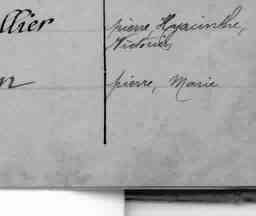 llier pierre, Hyacinthe,
Victorin
n pierre, Marie